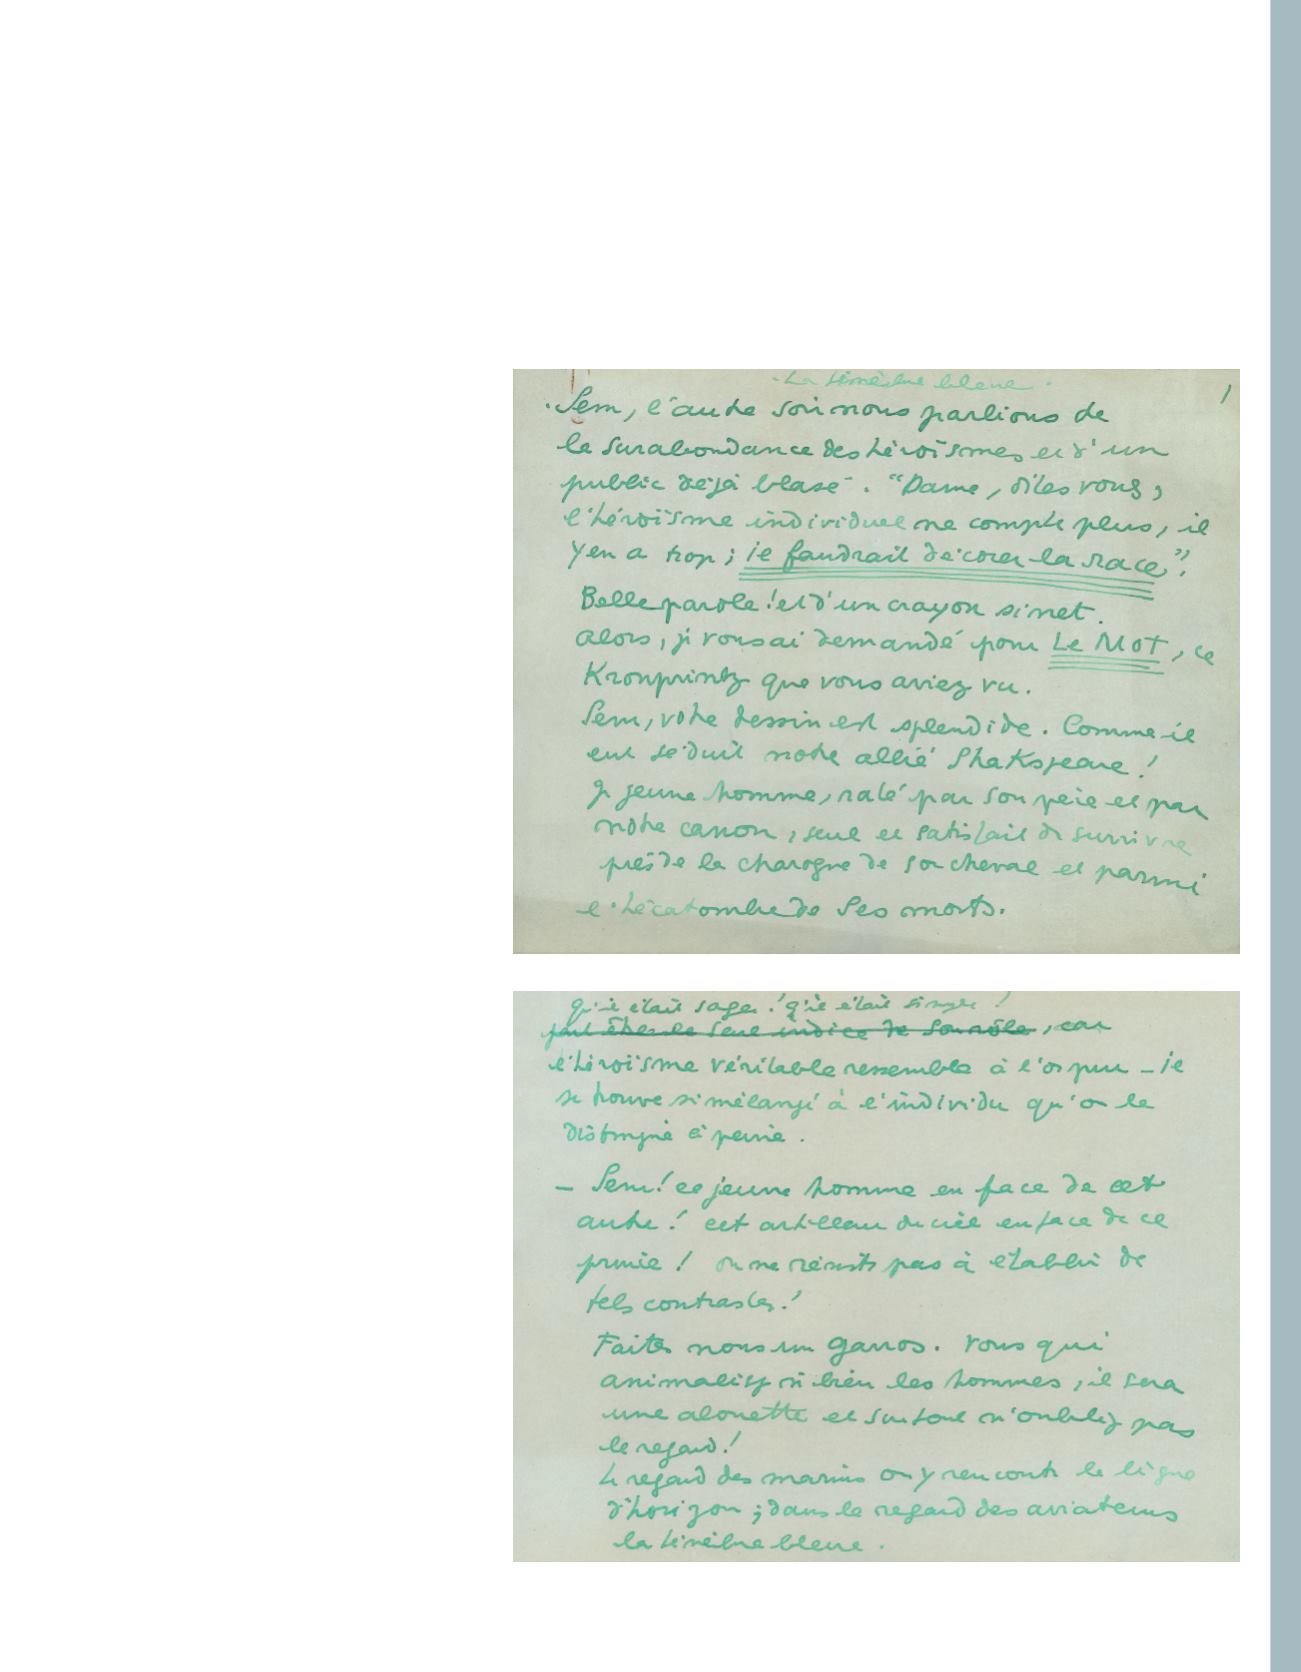 . La ténèbre bleue .
1
. Sem, l'autre soir nous parlions de
la surabondance des héroïsmes et d'un
public déjà blasé . "Dame, dites vous,
l'héroïsme individuel ne compte plus, il
y en a trop ; il faudrait décorer la race".
Belle parole ! et d'un crayon si net.
Alors, je vous ai demandé pour Le Mot, ce
Kronprintz que vous aviez vu.
Sem, votre dessin est splendide. Comme il
eut séduit notre allié Shakspeare !
Ce jeune homme, raté par son père et par
notre canon, seul et satisfait de survivre
près de la charogne de son cheval et parmi
l'hécatombe de ses morts.
qu'il était sage ! qu'il était simple !
peut être le seul indice de son rôle, car
l'héroïsme véritable ressemble à l'or pur – il
se trouve si mélangé à l'individu qu'on le
distingue à peine .
– Sem ! ce jeune homme en face de cet
autre ! cet du ciel en face de ce
prince ! on ne réussit pas à établir de
tels contrastes !
Faites nous un Garros. Vous qui
animalisez si bien les hommes, il sera
une alouette et surtout n'oubliez pas
le regard !
Le regard des marins on y rencontre la ligne
d'horizon ; dans le regard des aviateurs
la ténèbre bleue .